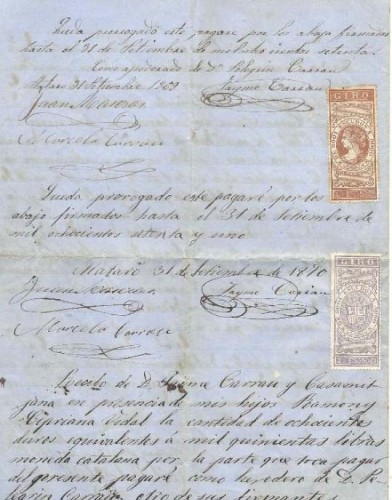 Queda prorogado este pagaré por los abajo firmados
hasta el 31 de Setiembre de mil ochocientos setenta.
Como apoderado de Dn Pelegrin Carrau
Mataró 31 Setiembre 1869
Juan Masoras
Jayme Carrau
Marcelo Carrau
GIRO
Queda prorogado este pagaré por los
abajo firmados hasta el 31 de Setiembre de
mil ochocientos setenta y uno
Mataró 31 de Setiembre de 1870
GIRO
Jayme Carrau
Marcelo Carrau
de D. Jaime Carrau y
en presencia de mis hijos Ramon y
Cipriana Vidal la cantidad de ochocientos
duros equivalentes á mil quinientas libras
moneda catalana por la parte que toca pagar
del presente pagaré como heredero de D. Pe